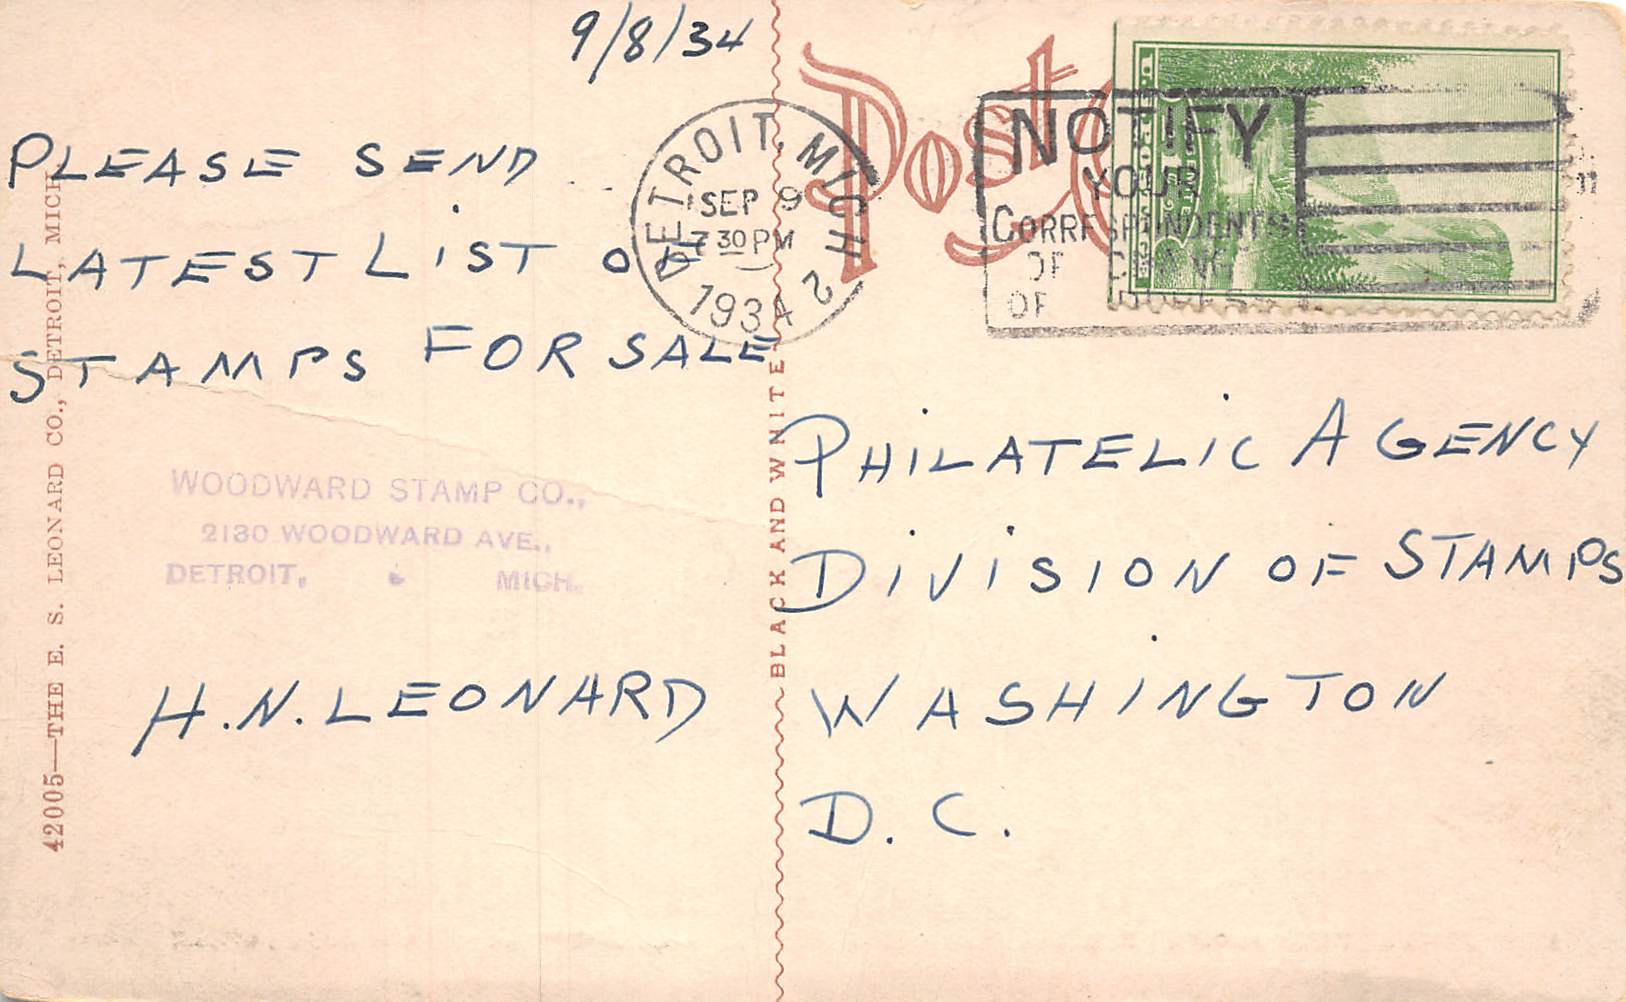 9/8/34
PLEASE SEND
LATEST LIST OF
STAMPS FOR SALE
WOODWARD STAMP CO.,
2130 WOODWARD AVE.,
DETROIT, MICH.
H.N. LEONARD
42005—THE E. S. LEONARD CO., DETROIT, MICH.
BLACK AND WHITE
Post
DETROIT, MICH 2
SEP 9
7 30 PM
1934
NOTIFY
YOUR
CORRESPONDENTS
OF CHANGE
OF ADDRESS
PHILATELIC AGENCY
DIVISION OF STAMPS
WASHINGTON
D. C.